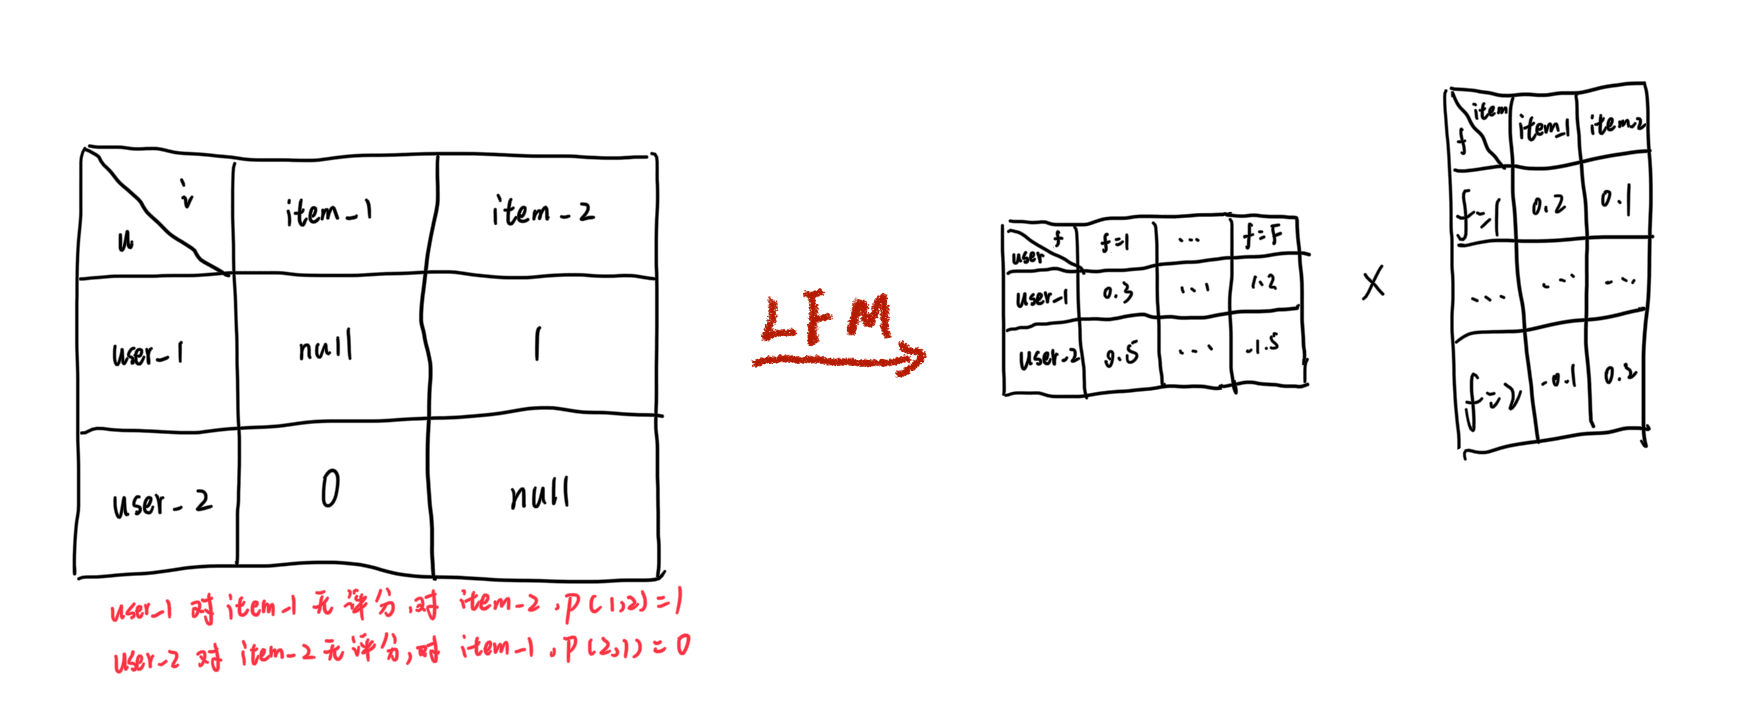 i
u
item_1
item_2
user_1
null
1
user_2
0
null
user_1 对 item_1 无评分,对 item_2,p(1,2)=1
user_2 对 item_2 无评分,对 item_1,p(2,1)=0
LFM
f
user
f=1
...
f=F
user_1
0.3
...
1.2
user_2
0.5
...
-1.5
X
item
f
item_1
item_2
f=1
0.2
0.1
...
...
...
f=2
-0.1